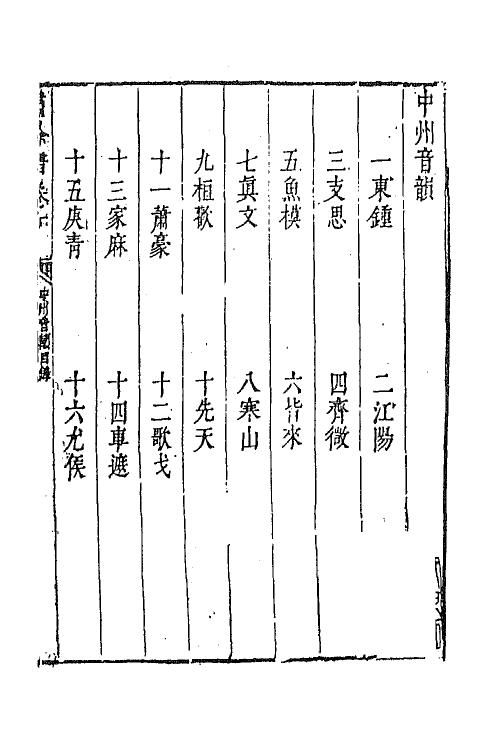 中州音韻
一東鍾 二江陽
三支思 四齊微
五魚模 六皆來
七眞文 八寒山
九桓歡 十先天
十一蕭豪 十二歌戈
十三家麻 十四車遮
十五庚青 十六尤侯
中州音韻目錄